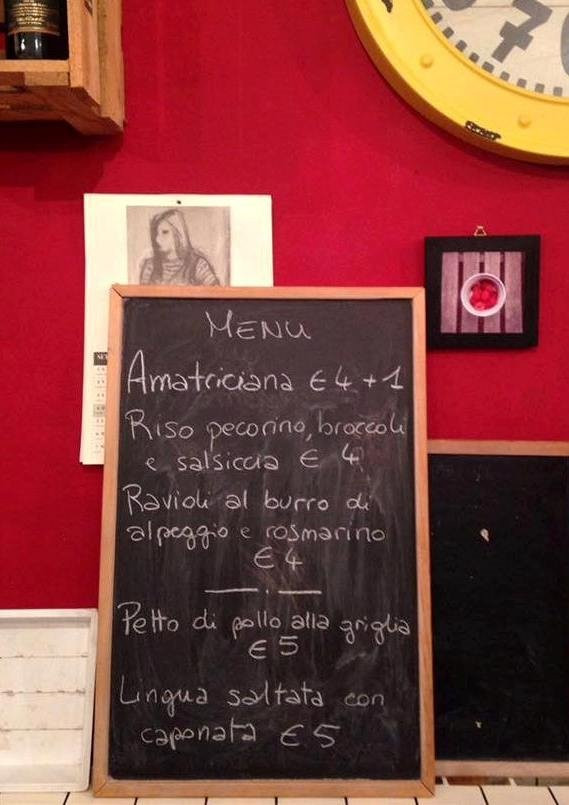 MENU
Amatriciana € 4 + 1
Riso pecorino, broccoli
e salsiccia € 4
Ravioli al burro di
alpeggio e rosmarino
€ 4
Petto di pollo alla griglia
€ 5
Lingua saltata con
caponata € 5
7